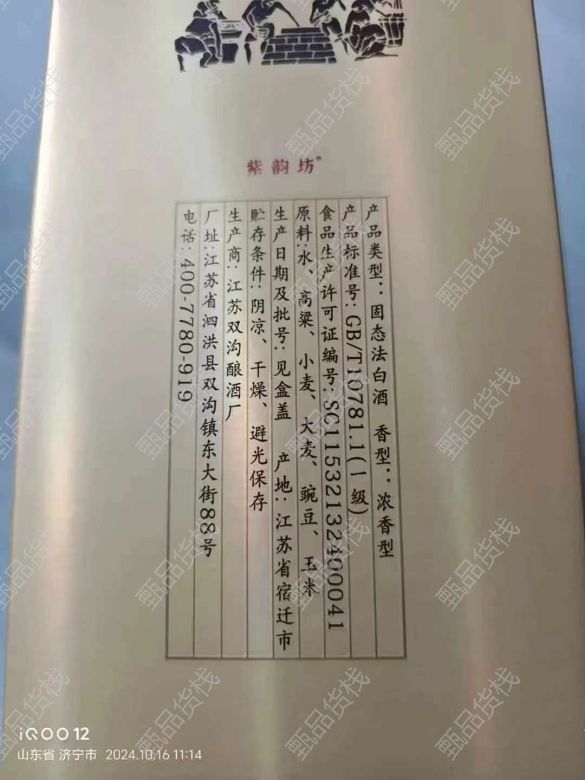 紫韵坊®
产品类型：固态法白酒 香型：浓香型
产品标准号:GB/T10781.1(一级)
食品生产许可证编号:SC11532132400041
原料:水、高粱、小麦、大麦、豌豆、玉米
生产日期及批号:见盒盖 产地:江苏省宿迁市
贮存条件:阴凉、干燥、避光保存
生产商:江苏双沟酿酒厂
厂址:江苏省泗洪县双沟镇东大街88号
电话:400-7780-919
iQOO 12
山东省 济宁市 2024.10.16 11:14
甄品货栈